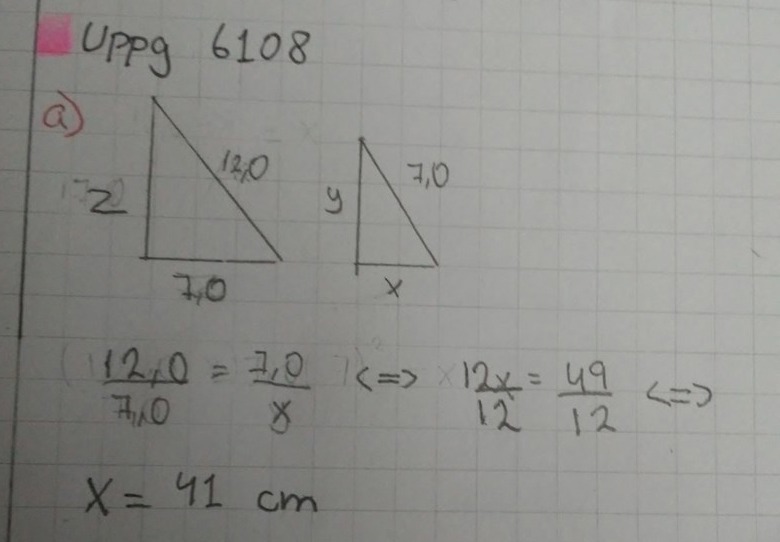 Uppg 6108
a)
z 12,0 y 7,0
7,0 x
12,0/7,0 = 7,0/x <=> 12x/12 = 49/12 <=>
x = 41 cm